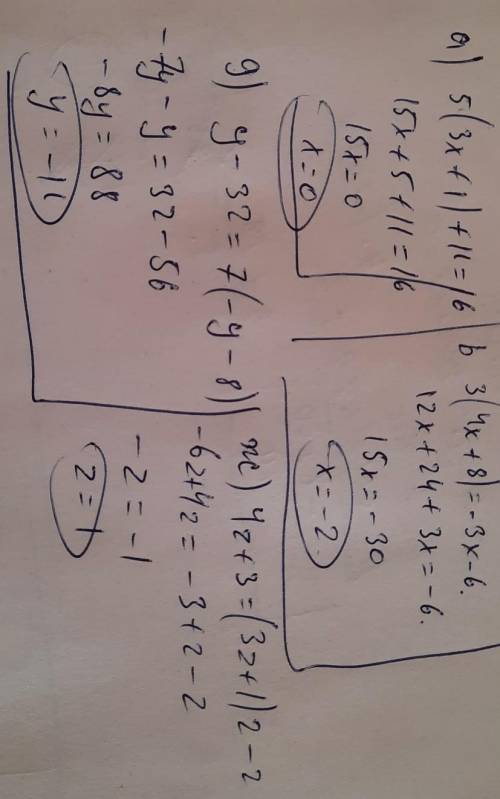 а) 5(3x+1)+11=16
15x+5+11=16
15x=0
x=0
b 3(4x+8)=-3x-6.
12x+24+3x=-6.
15x=-30
x=-2.
g) y-32=7(-y-8)
-7y-y=32-56
-8y=88
y=-11
ж) 4z+3=(3z+1)2-2
-6z+4z=-3+2-2
-z=-1
z=1